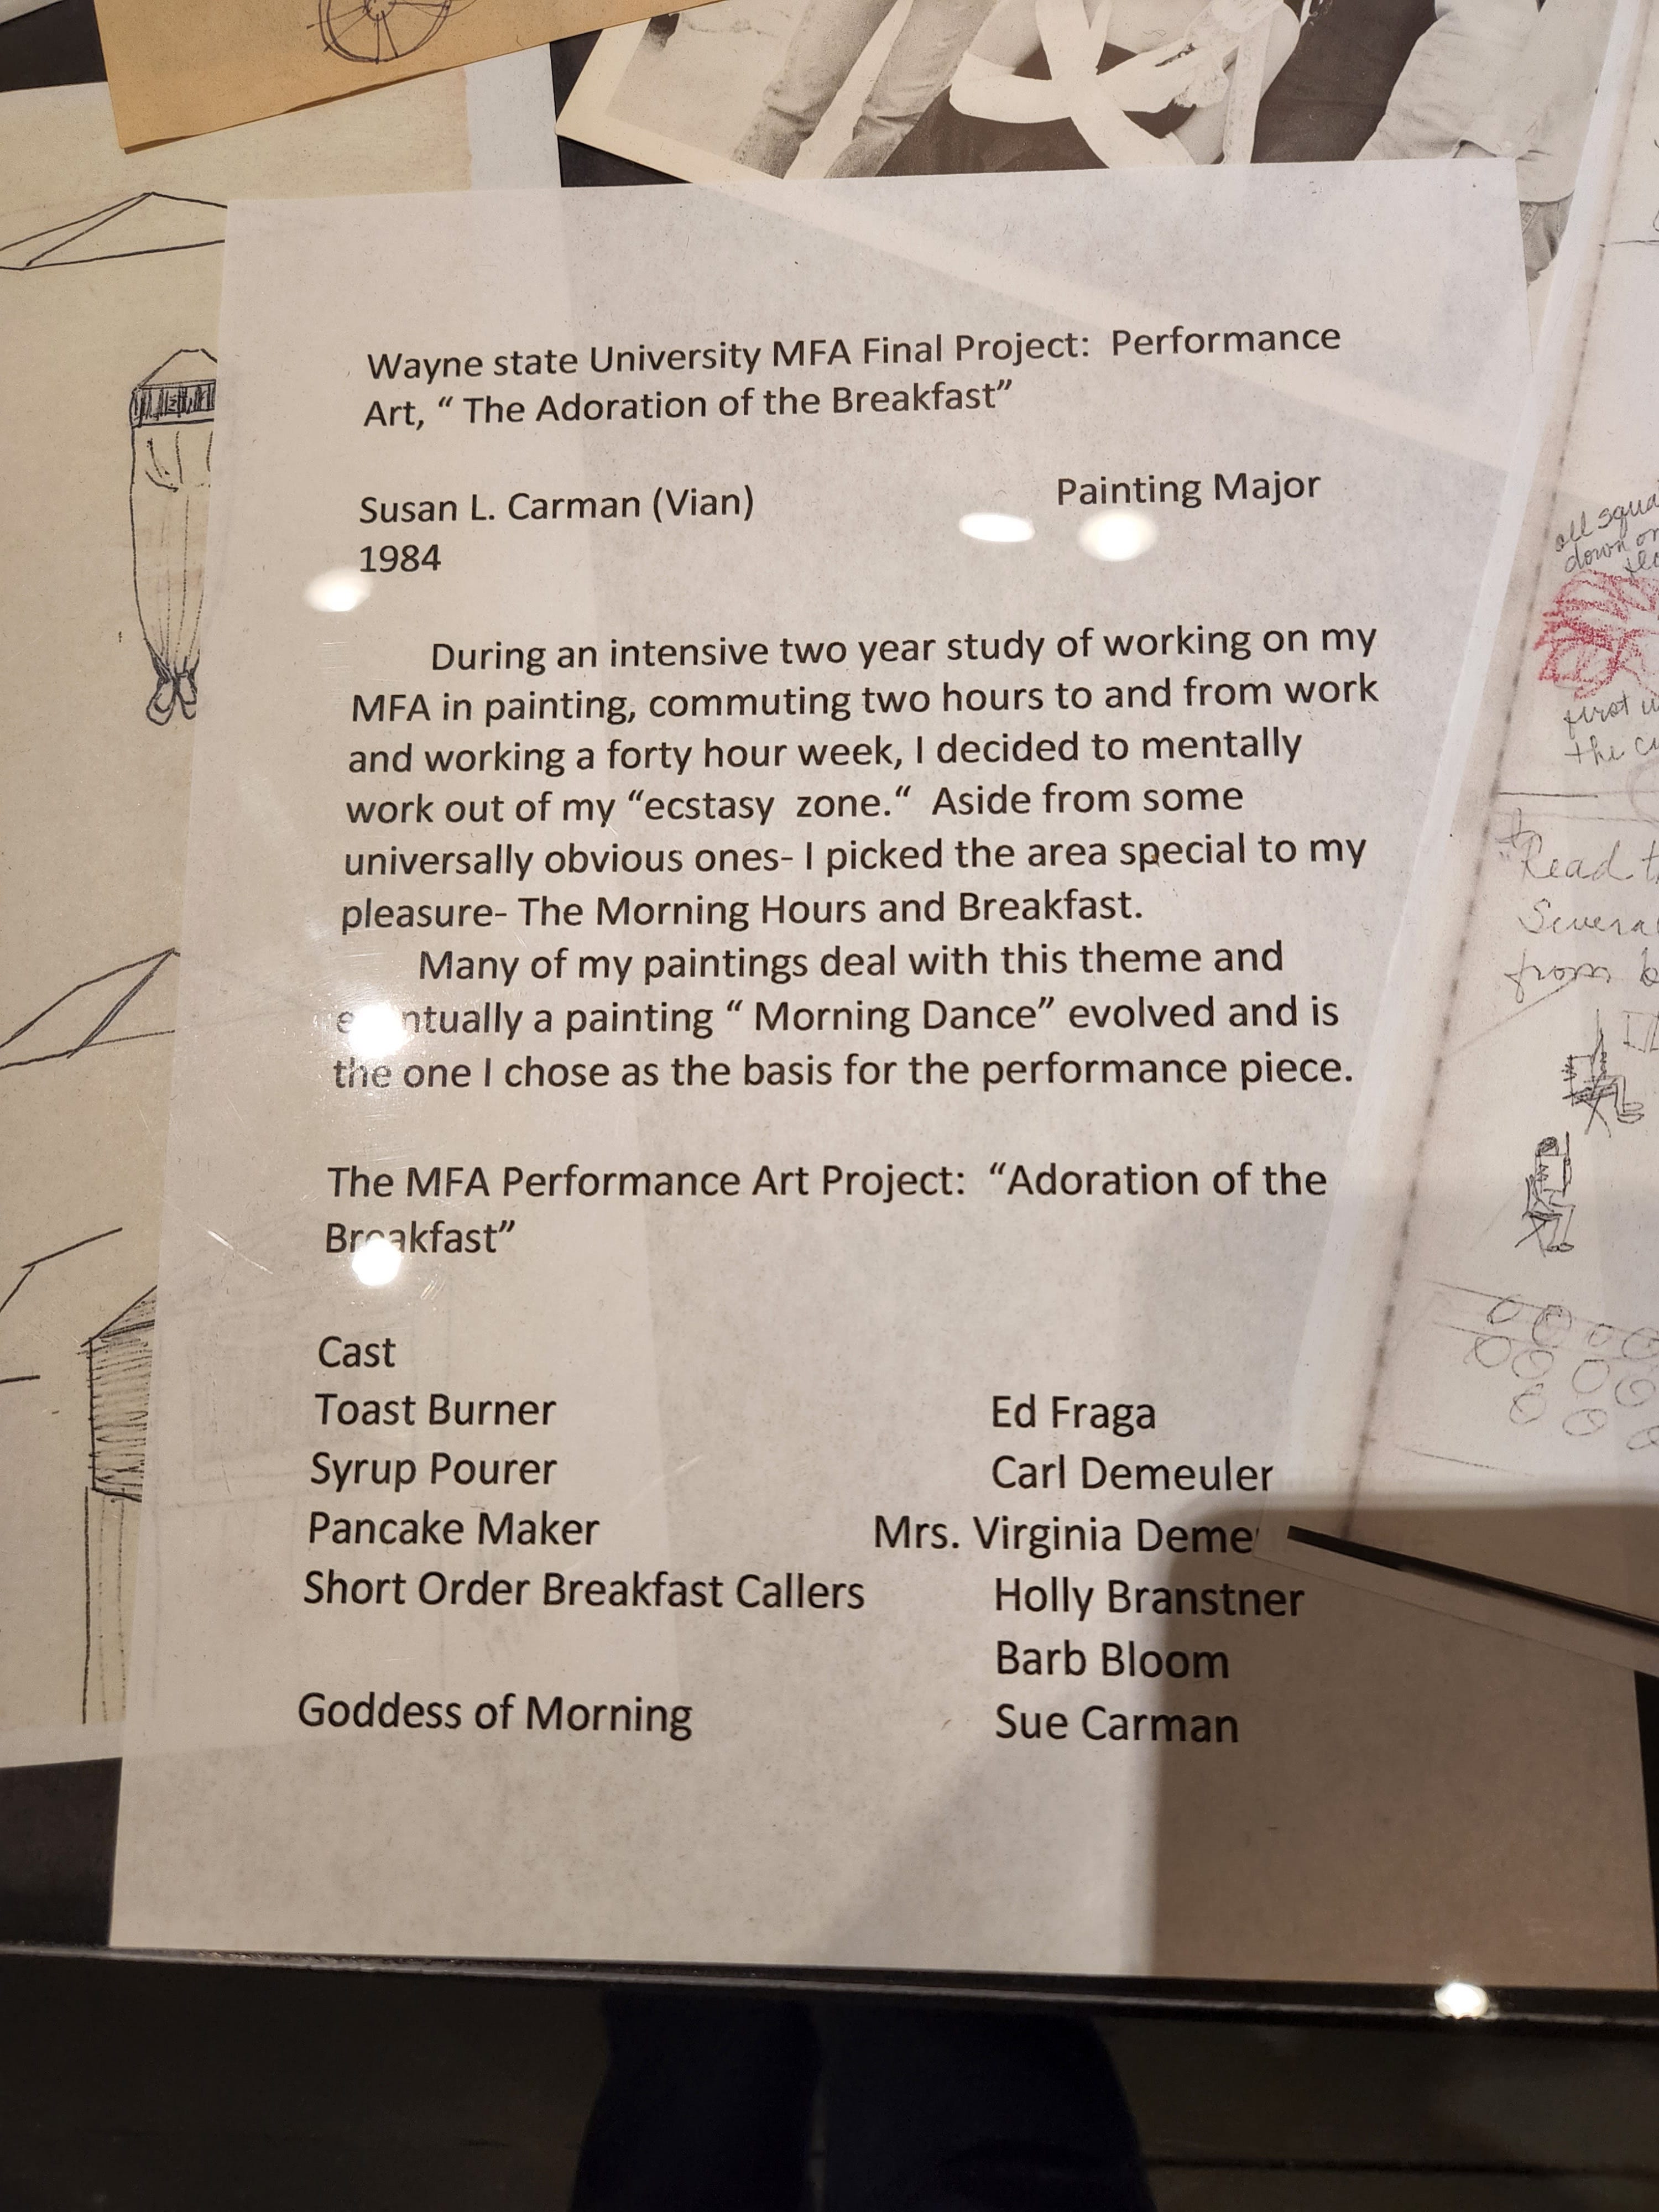 Wayne state University MFA Final Project:  Performance
Art, “ The Adoration of the Breakfast”
Susan L. Carman (Vian) Painting Major
1984
During an intensive two year study of working on my
MFA in painting, commuting two hours to and from work
and working a forty hour week, I decided to mentally
work out of my “ecstasy  zone.“  Aside from some
universally obvious ones- I picked the area special to my
pleasure- The Morning Hours and Breakfast.
Many of my paintings deal with this theme and
eventually a painting “ Morning Dance” evolved and is
the one I chose as the basis for the performance piece.
The MFA Performance Art Project:  “Adoration of the
Breakfast”
Cast
Toast Burner Ed Fraga
Syrup Pourer Carl Demeuler
Pancake Maker Mrs. Virginia Deme
Short Order Breakfast Callers Holly Branstner
Barb Bloom
Goddess of Morning Sue Carman
all squa
down on
first
the
Read
Several
from